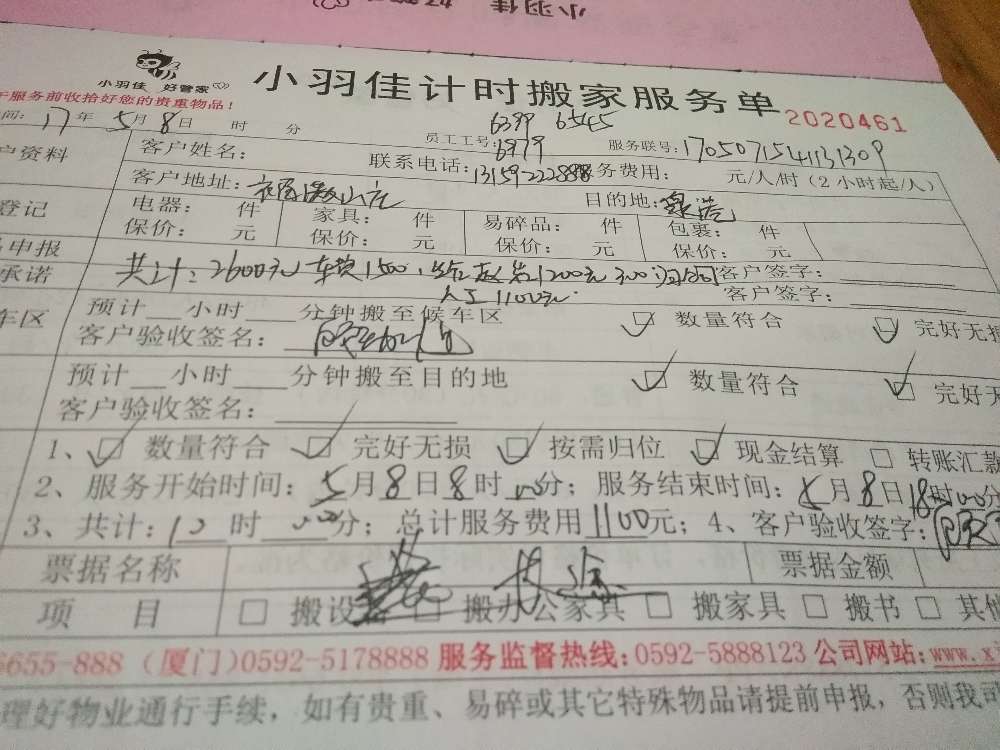 小羽佳 好管家
小羽佳 好管家
小羽佳计时搬家服务单
2020461
服务前收拾好您的贵重物品！
间: 17年 5月 8日 时 分
6399 6545
员工工号: 6979
服务联号: 1705071541131309
户资料
客户姓名:
联系电话: 13159222888
务费用: 元/人/时（2小时起/人）
客户地址:
目的地:
登记
电器: 件
家具: 件
易碎品: 件
包裹: 件
申报
保价: 元
保价: 元
保价: 元
保价: 元
承诺
共计: 2600元 车费1500.
1200元 300
客户签字:
人工1100元
客户签字:
车区
预计 小时 分钟搬至候车区
数量符合
完好无损
客户验收签名:
预计 小时 分钟搬至目的地
数量符合
完好无
客户验收签名:
1、 数量符合 完好无损 按需归位 现金结算 转账汇款
2、服务开始时间: 5月8日8时00分; 服务结束时间: 5月8日18时00分
3、共计: 10时00分; 总计服务费用1100元; 4、客户验收签字:
票据名称
票据金额
项 目
搬设备 搬办公家具 搬家具 搬书 其他
6655-888（厦门)0592-5178888 服务监督热线: 0592-5888123 公司网站: www.x
理好物业通行手续，如有贵重、易碎或其它特殊物品请提前申报，否则我司